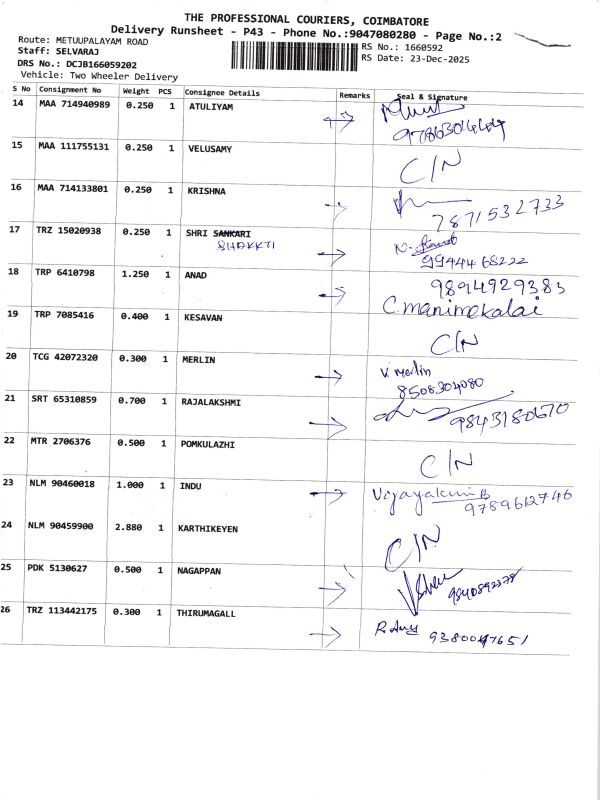 THE PROFESSIONAL COURIERS, COIMBATORE
Delivery Runsheet - P43 - Phone No.:9047080280 - Page No.:2
Route: METUUPALAYAM ROAD
Staff: SELVARAJ
DRS No.: DCJB166059202
Vehicle: Two Wheeler Delivery
RS No.: 1660592
RS Date: 23-Dec-2025
S No Consignment No Weight PCS Consignee Details Remarks Seal & Signature
14 MAA 714940989 0.250 1 ATULIYAM
15 MAA 111755131 0.250 1 VELUSAMY C/N
16 MAA 714133801 0.250 1 KRISHNA
7871532733
17 TRZ 15020938 0.250 1 SHRI SANKARI
SHAKKTI
9944468222
18 TRP 6410798 1.250 1 ANAD 9894929383
C.manimekalai
19 TRP 7085416 0.400 1 KESAVAN
C/N
20 TCG 42072320 0.300 1 MERLIN V. Merlin
8508304080
21 SRT 65310859 0.700 1 RAJALAKSHMI
9843180670
22 MTR 2706376 0.500 1 POMKULAZHI
C/N
23 NLM 90460018 1.000 1 INDU
9789612746
24 NLM 90459900 2.880 1 KARTHIKEYEN
C/N
25 PDK 5130627 0.500 1 NAGAPPAN
26 TRZ 113442175 0.300 1 THIRUMAGALL
9380047651